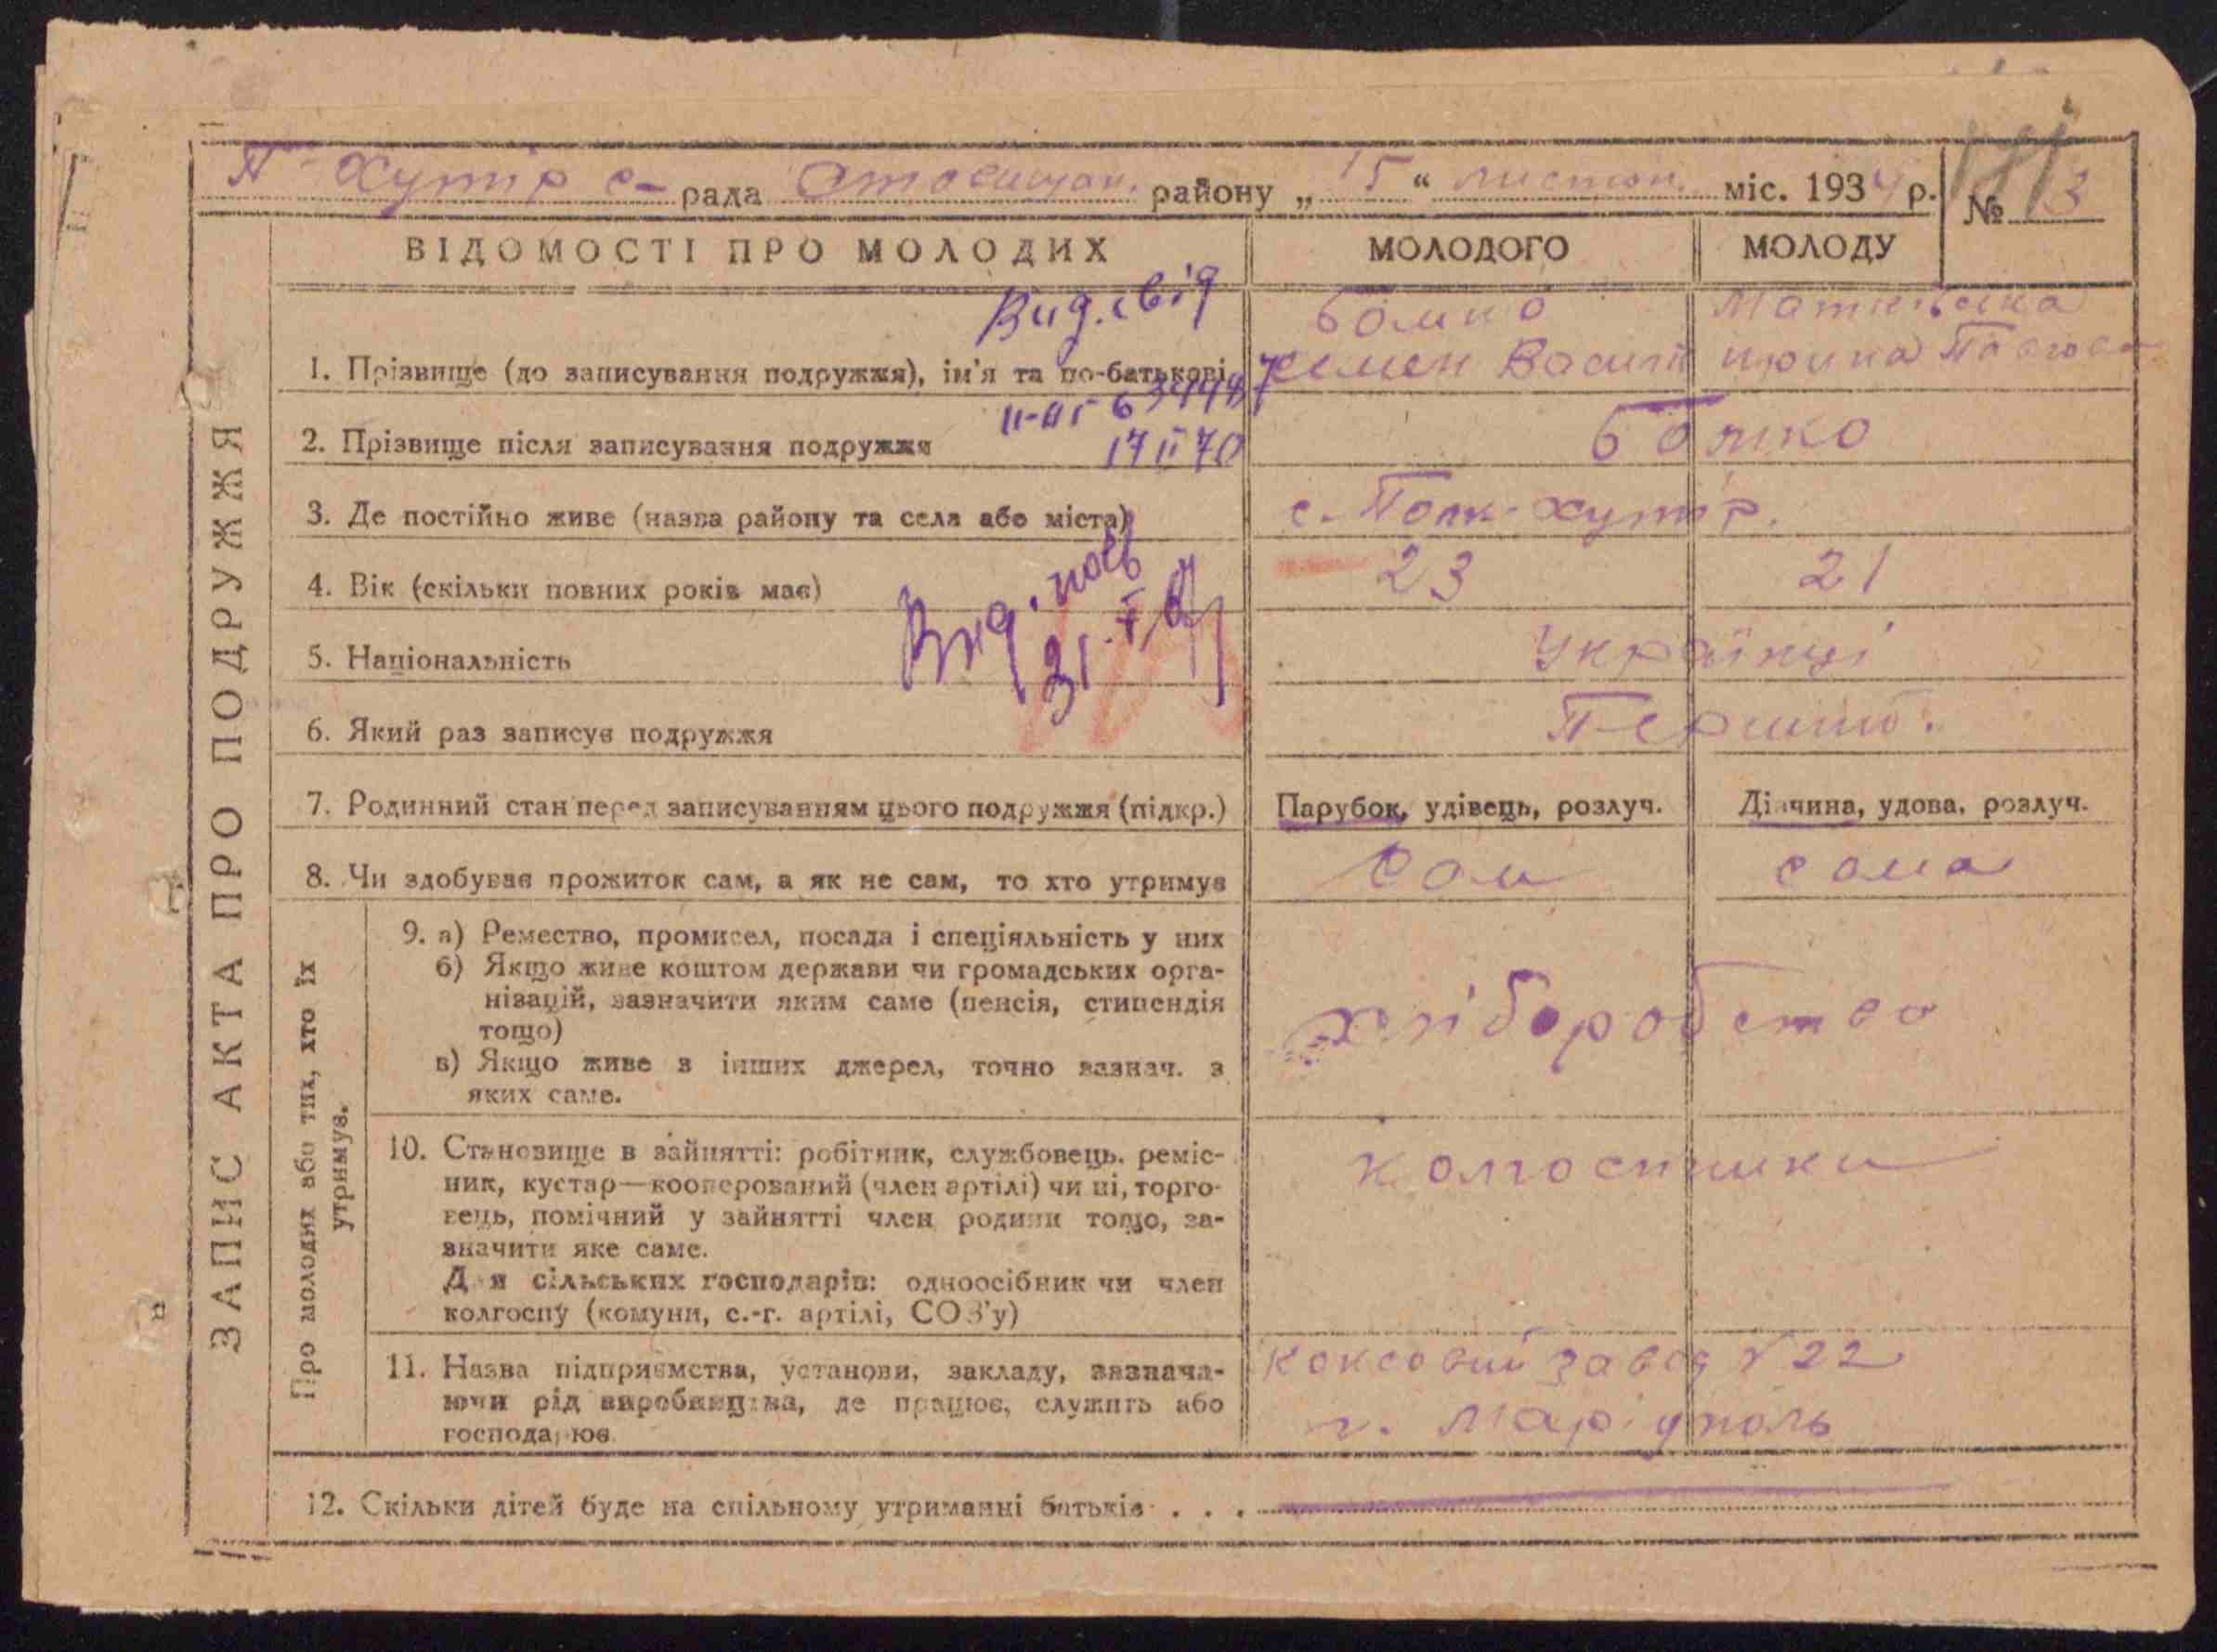 П-Хутір с-рада Стосищан. району „15“ листоп. міс. 1934 р. № 13
ВІДОМОСТІ ПРО МОЛОДИХ
МОЛОДОГО
МОЛОДУ
Вид. свід
1. Прізвище (до записування подружжя), ім'я та по-батькові
Бойко
Семен Васил
Пав
II-БГ 634448
17 II 70
2. Прізвище після записування подружжя
Бойко
3. Де постійно живе (назва району та села або міста)
с. Полк-хутір.
4. Вік (скільки повних років має)
23
21
Вид. посв
31.
5. Національність
Українці
6. Який раз записує подружжя
7. Родинний стан перед записуванням цього подружжя (підкр.)
Парубок, удівець, розлуч.
Дівчина, удова, розлуч.
8. Чи здобуває прожиток сам, а як не сам, то хто утримує
Сам
сама
ЗАПИС АКТА ПРО ПОДРУЖЖЯ
Про молодих або тих, хто їх
утримує.
9. а) Ремество, промисел, посада і спеціяльність у них
б) Якщо живе коштом держави чи громадських орга-
нізацій, зазначити яким саме (пенсія, стипендія
тощо)
в) Якщо живе з інших джерел, точно зазнач. з
яких саме.
хліборобство
10. Становище в зайнятті: робітник, службовець, реміс-
ник, кустар—кооперований (член артілі) чи ні, торго-
вець, помічний у зайнятті член родини тощо, за-
значити яке саме.
Для сільських господарів: одноосібник чи член
колгоспу (комуни, с.-г. артілі, СОЗ'у)
колгоспники
11. Назва підприємства, установи, закладу, зазнача-
ючи рід виробництва, де працює, служить або
господарює
Коксовий завод № 22
г. Маріуполь
12. Скільки дітей буде на спільному утриманні батьків . . .